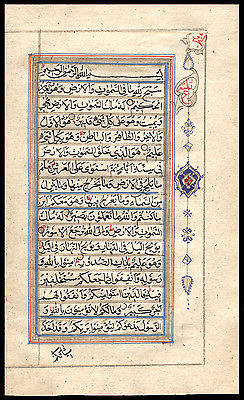 بسم الله الرحمن الرحيم
سبح لله ما في السموات والارض وهو العزيز
الحكيم له ملك السموات والارض يحيي و
يميت وهو على كل شيء قدير هو الاول
والآخر والظاهر والباطن وهو بكل شيء عليم
هو الذي خلق السموات والارض
في ستة ايام ثم استوى على العرش يعلم
ما يلج في الارض وما يخرج منها وما ينزل
من السماء وما يعرج فيها وهو معكم اين
ما كنتم والله بما تعملون بصير له ملك
السموات والارض والى الله ترجع الامور
يولج الليل في النهار ويولج النهار في الليل
وهو عليم بذات الصدور آمنوا بالله و
رسوله وانفقوا مما جعلكم مستخلفين
فيه فالذين آمنوا منكم وانفقوا لهم
اجر كبير وما لكم لا تؤمنون بالله و
الرسول يدعوكم لتؤمنوا بربكم وقد اخذ